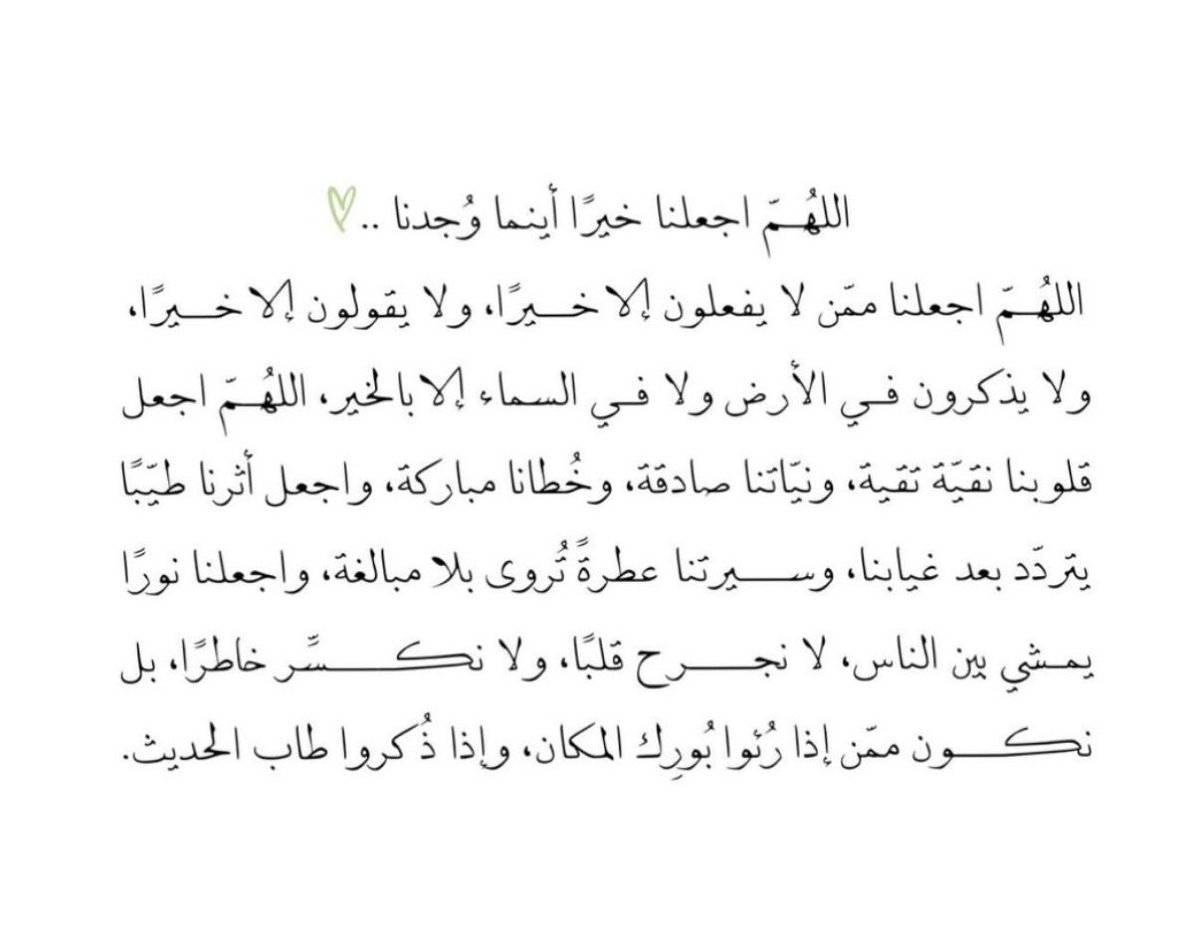 اللهُمّ اجعلنا خيرًا أينما وُجدنا ..
اللهُمّ اجعلنا ممّن لا يفعلون إلا خيرًا، ولا يقولون إلا خيرًا،
ولا يذكرون في الأرض ولا في السماء إلا بالخير، اللهُمّ اجعل
قلوبنا نقيّة تقية، ونيّاتنا صادقة، وخُطانا مباركة، واجعل أثرنا طيّبًا
يتردّد بعد غيابنا، وسيرتنا عطرةً تُروى بلا مبالغة، واجعلنا نورًا
يمشي بين الناس، لا نجرح قلبًا، ولا نكسّر خاطرًا، بل
نكون ممّن إذا رُئوا بُورِك المكان، وإذا ذُكروا طاب الحديث.